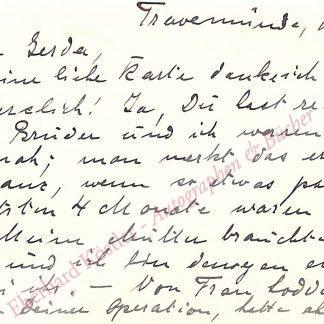 Travemünde,
Gerda,
eine liebe Karte dank ich
herzlich! Ja, Du hast re
Bruder und ich waren
nah; man merkt das er
ganz, wenn so etwas pa
4 Monate waren
Meine Mutter brauchte
und ich bin deswegen
ist. – Von Frau
Deiner Operation, hatte ab
Eberhard Köstler - Autographen & Bücher